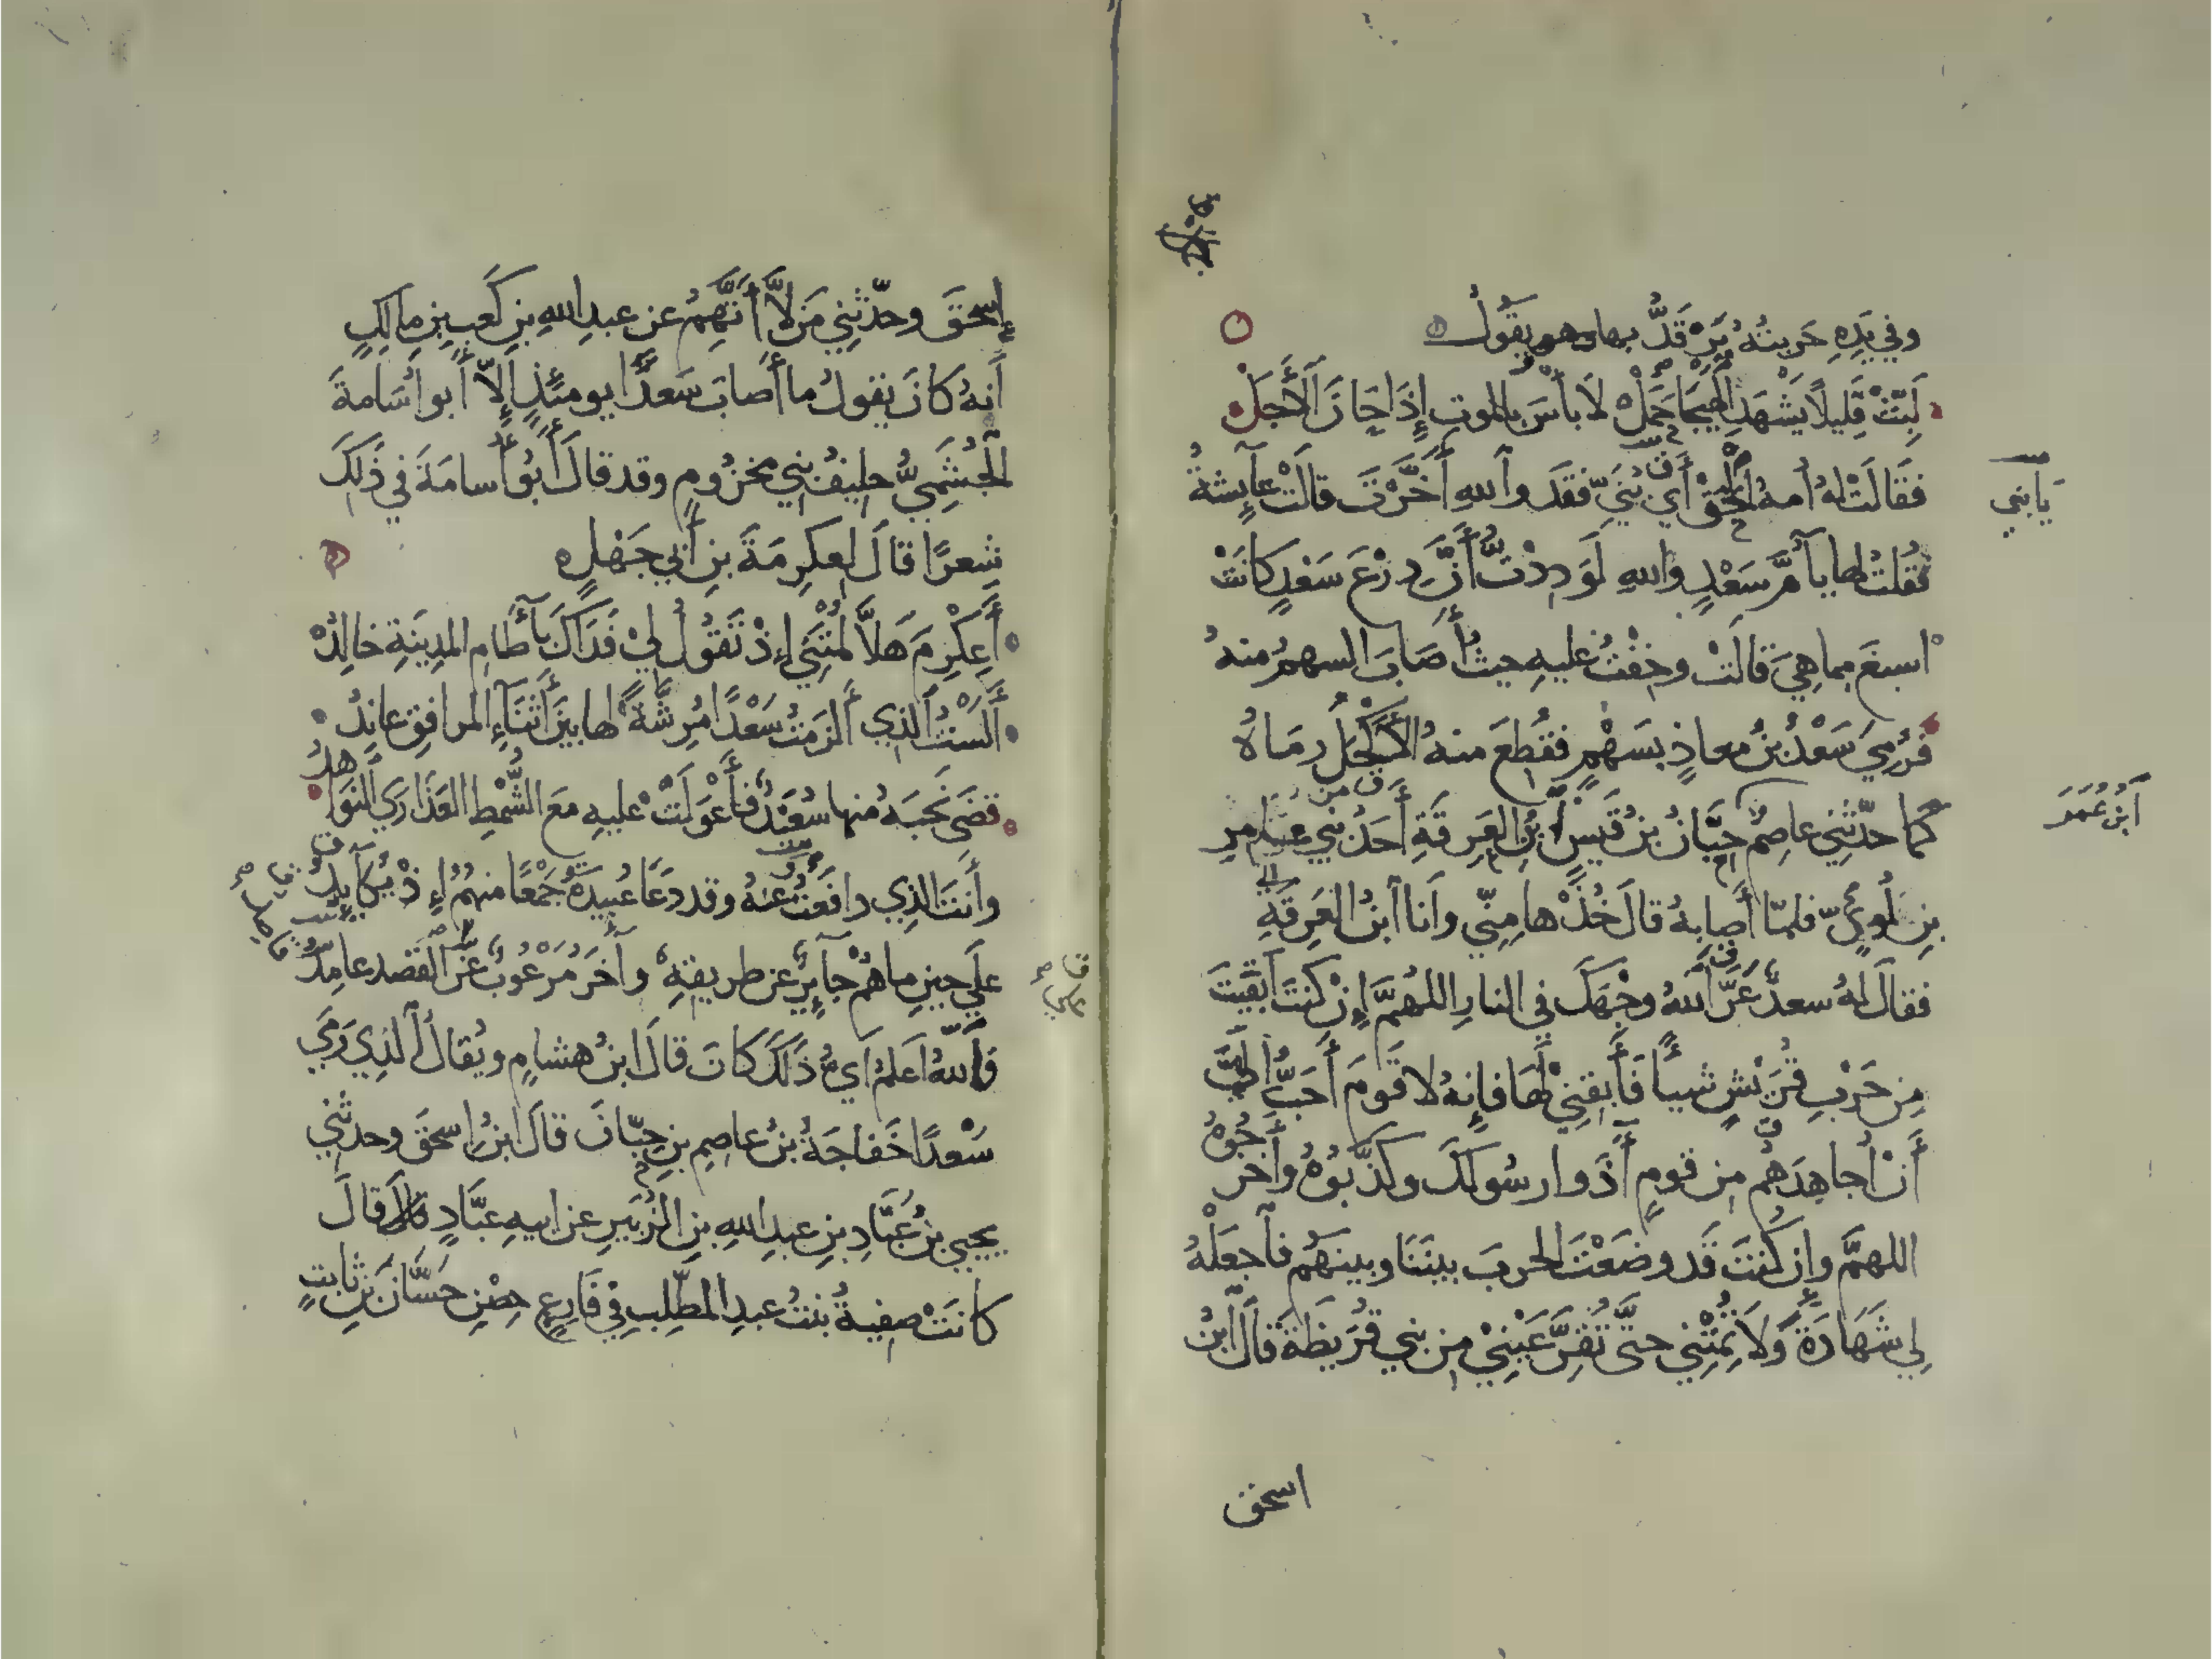 وفي يَدِهِ حَربتُهُ يَرْقَدُّ بها وهو يقُولُ
لَبِّثْ قَلِيلاً يَشْهَدِ الهَيجَا حَمَلْ لَا بأسَ بالموتِ إِذَا حَانَ الأَجَلْ
فَقَالَتْ لهُ أُمهُ اِلْحَقْ أَي بُنَيِّ فقَد والله أَخَّرْتَ قالَتْ عآيِشةُ
يَا بني
فقُلتُ لها يا أُمَّ سَعْدٍ والله لَوَدِدْتُ أَنَّ دِرْعَ سَعْدٍ كانَتْ
اسبغَ مما هِيَ قالَتْ وخِفْتُ عليهِ حيثُ أَصَابَ السهمُ منهُ
فَرُمِيَ سَعْدُ بنُ معاذٍ بسَهْمٍ فقُطِعَ منهُ الأَكْحَلُ رمَاهُ
كما حدّثنِي عاصِمُ حِبَّانُ بنُ قَيسِ بنِ العَرِقَةِ أَحَدُ بني عَامِرِ
ابْنُ عُمَرَ
بنِ لُؤيٍّ فلمّا أَصابهُ قالَ خُذْها مِنِّي وأنا ابنُ العَرِقَةِ
فقالَ لهُ سعدٌ عَرَّقَ اللهُ وجْهَكَ في النارِ اللهُمَّ إنْ كنتَ أَبقَيتَ
مِن حَرْبِ قُرَيْشٍ شيأً فَأَبقِنِي لَها فإنهُ لا قومَ أَحَبُّ إلَيَّ
أَنْ أُجاهِدَهُم مِن قومٍ آذَوا رسُولَكَ وكَذَّبُوهُ وأَخرَجُوهُ
اللهمَّ وإن كُنتَ قَد وضَعْتَ الحربَ بينَنَا وبينَهُم فاجعَلْهُ
لِي شَهَادَةً وَلاَ تُمِتْنِي حتَّى تُقِرَّ عَيْنِيْ مِن بني قُرَيظةَ قالَ ابنُ
اسحق
إِسحقَ وحدّثنِي مَن لاَّ أَتَّهِمُ عن عبدِ اللهِ بنِ كَعبِ بنِ مالكٍ
أَنهُ كانَ يقولُ ما أَصابَ سَعدًا يومئذٍ إلاَّ أَبو أُسَامةَ
الجُشَمِيُّ حليفُ بني مخزُومٍ وقد قالَ أَبُو أُسامَةَ في ذَٰلكَ
شِعرًا قالَ لعِكرِمَةَ بنِ أَبي جَهْلٍ
أَعِكْرِمَ هَلاَّ لُمْتَنِي إِذْ تَقُولُ لِيْ فَدَاكَ بآطَامِ المدِينَةِ خالِدُ
أَلَسْتُ الذِي أَلزَمْتُ سَعْدًا مُرِشَّةً لها بينَ أَثنَاءِ المرافقِ عانِدُ
قضَى نَحبَهُ منها سُعَيْدٌ فأَعْوَلَتْ عليهِ معَ الشُّمْطِ العَذَارَى النَّوَاهدُ
وأنتَ الذِي دافَعْتَ عَنهُ وقد دَعَا عُبيدَةُ جَمْعًا منهُمُ إِذْ يُكَابِدُ
علَى حينِ ما هُمْ جآئِرٌ عن طريقِهِ وآخَرُ مَرْعُوبٌ عن القَصْدِ عامِدُ
واللهُ أَعلَمُ أَيُّ ذَٰلكَ كانَ قالَ ابنُ هشامٍ ويُقالُ الَّذِي رَمَى
سَعْدًا خَفاجَةُ بنُ عاصِمِ بنِ حِبَّانَ قالَ ابنُ اسحقَ وحدثني
يحيى بنُ عَبَّادِ بنِ عبدِ اللهِ بنِ الزُّبَيرِ عن ابيهِ عبَّادٍ قالَ
كانَتْ صفِيةُ بنتُ عبدِ المُطَّلِبِ فِي فَارِعٍ حِصْنِ حَسَّانَ بنِ ثابتٍ